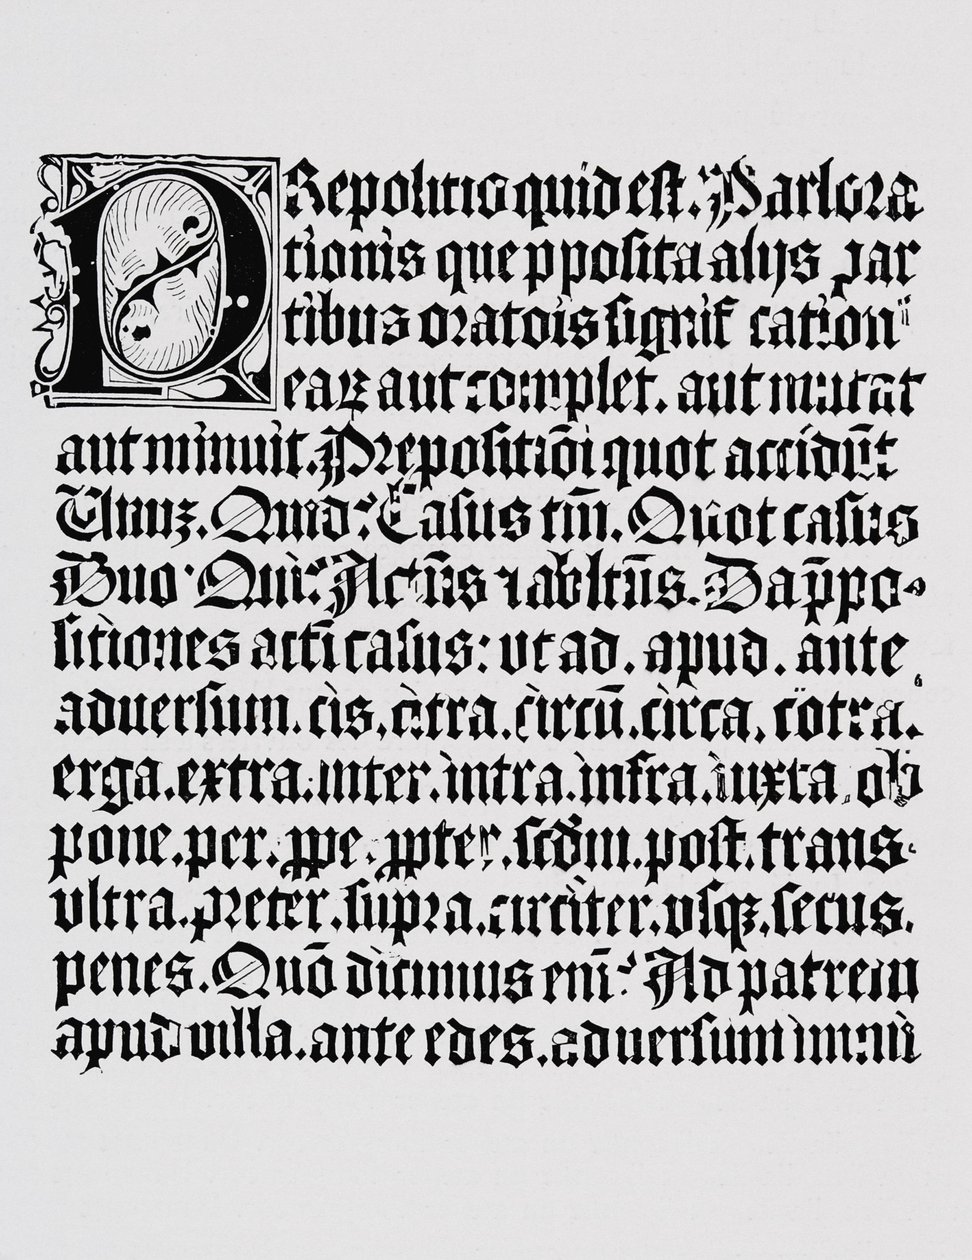 PRepositio quid est. Pars ora
tionis que ꝓposita alijs par
tibus oratōis significationē
eaꝝ aut complet. aut mutat
aut minuit. Prepositiōi quot accidūt
Unuꝫ. Quid? Casus tm̄. Quot casus
Duo. Qui? Actūs ⁊ abltūs. Da p̄po-
sitiones acti casus: vt ad. apud. ante
aduersum. cis. citra. circū. circa. cōtra.
erga. extra. inter. intra. infra. iuxta. ob
pone. per. ꝓpe. ꝓpter. scd'm. post. trans.
vltra. preter. supra. circiter. vsqꝫ. secus.
penes. Quō dicimus eni? Ad patrem
apud villa. ante edes. aduersum inimi